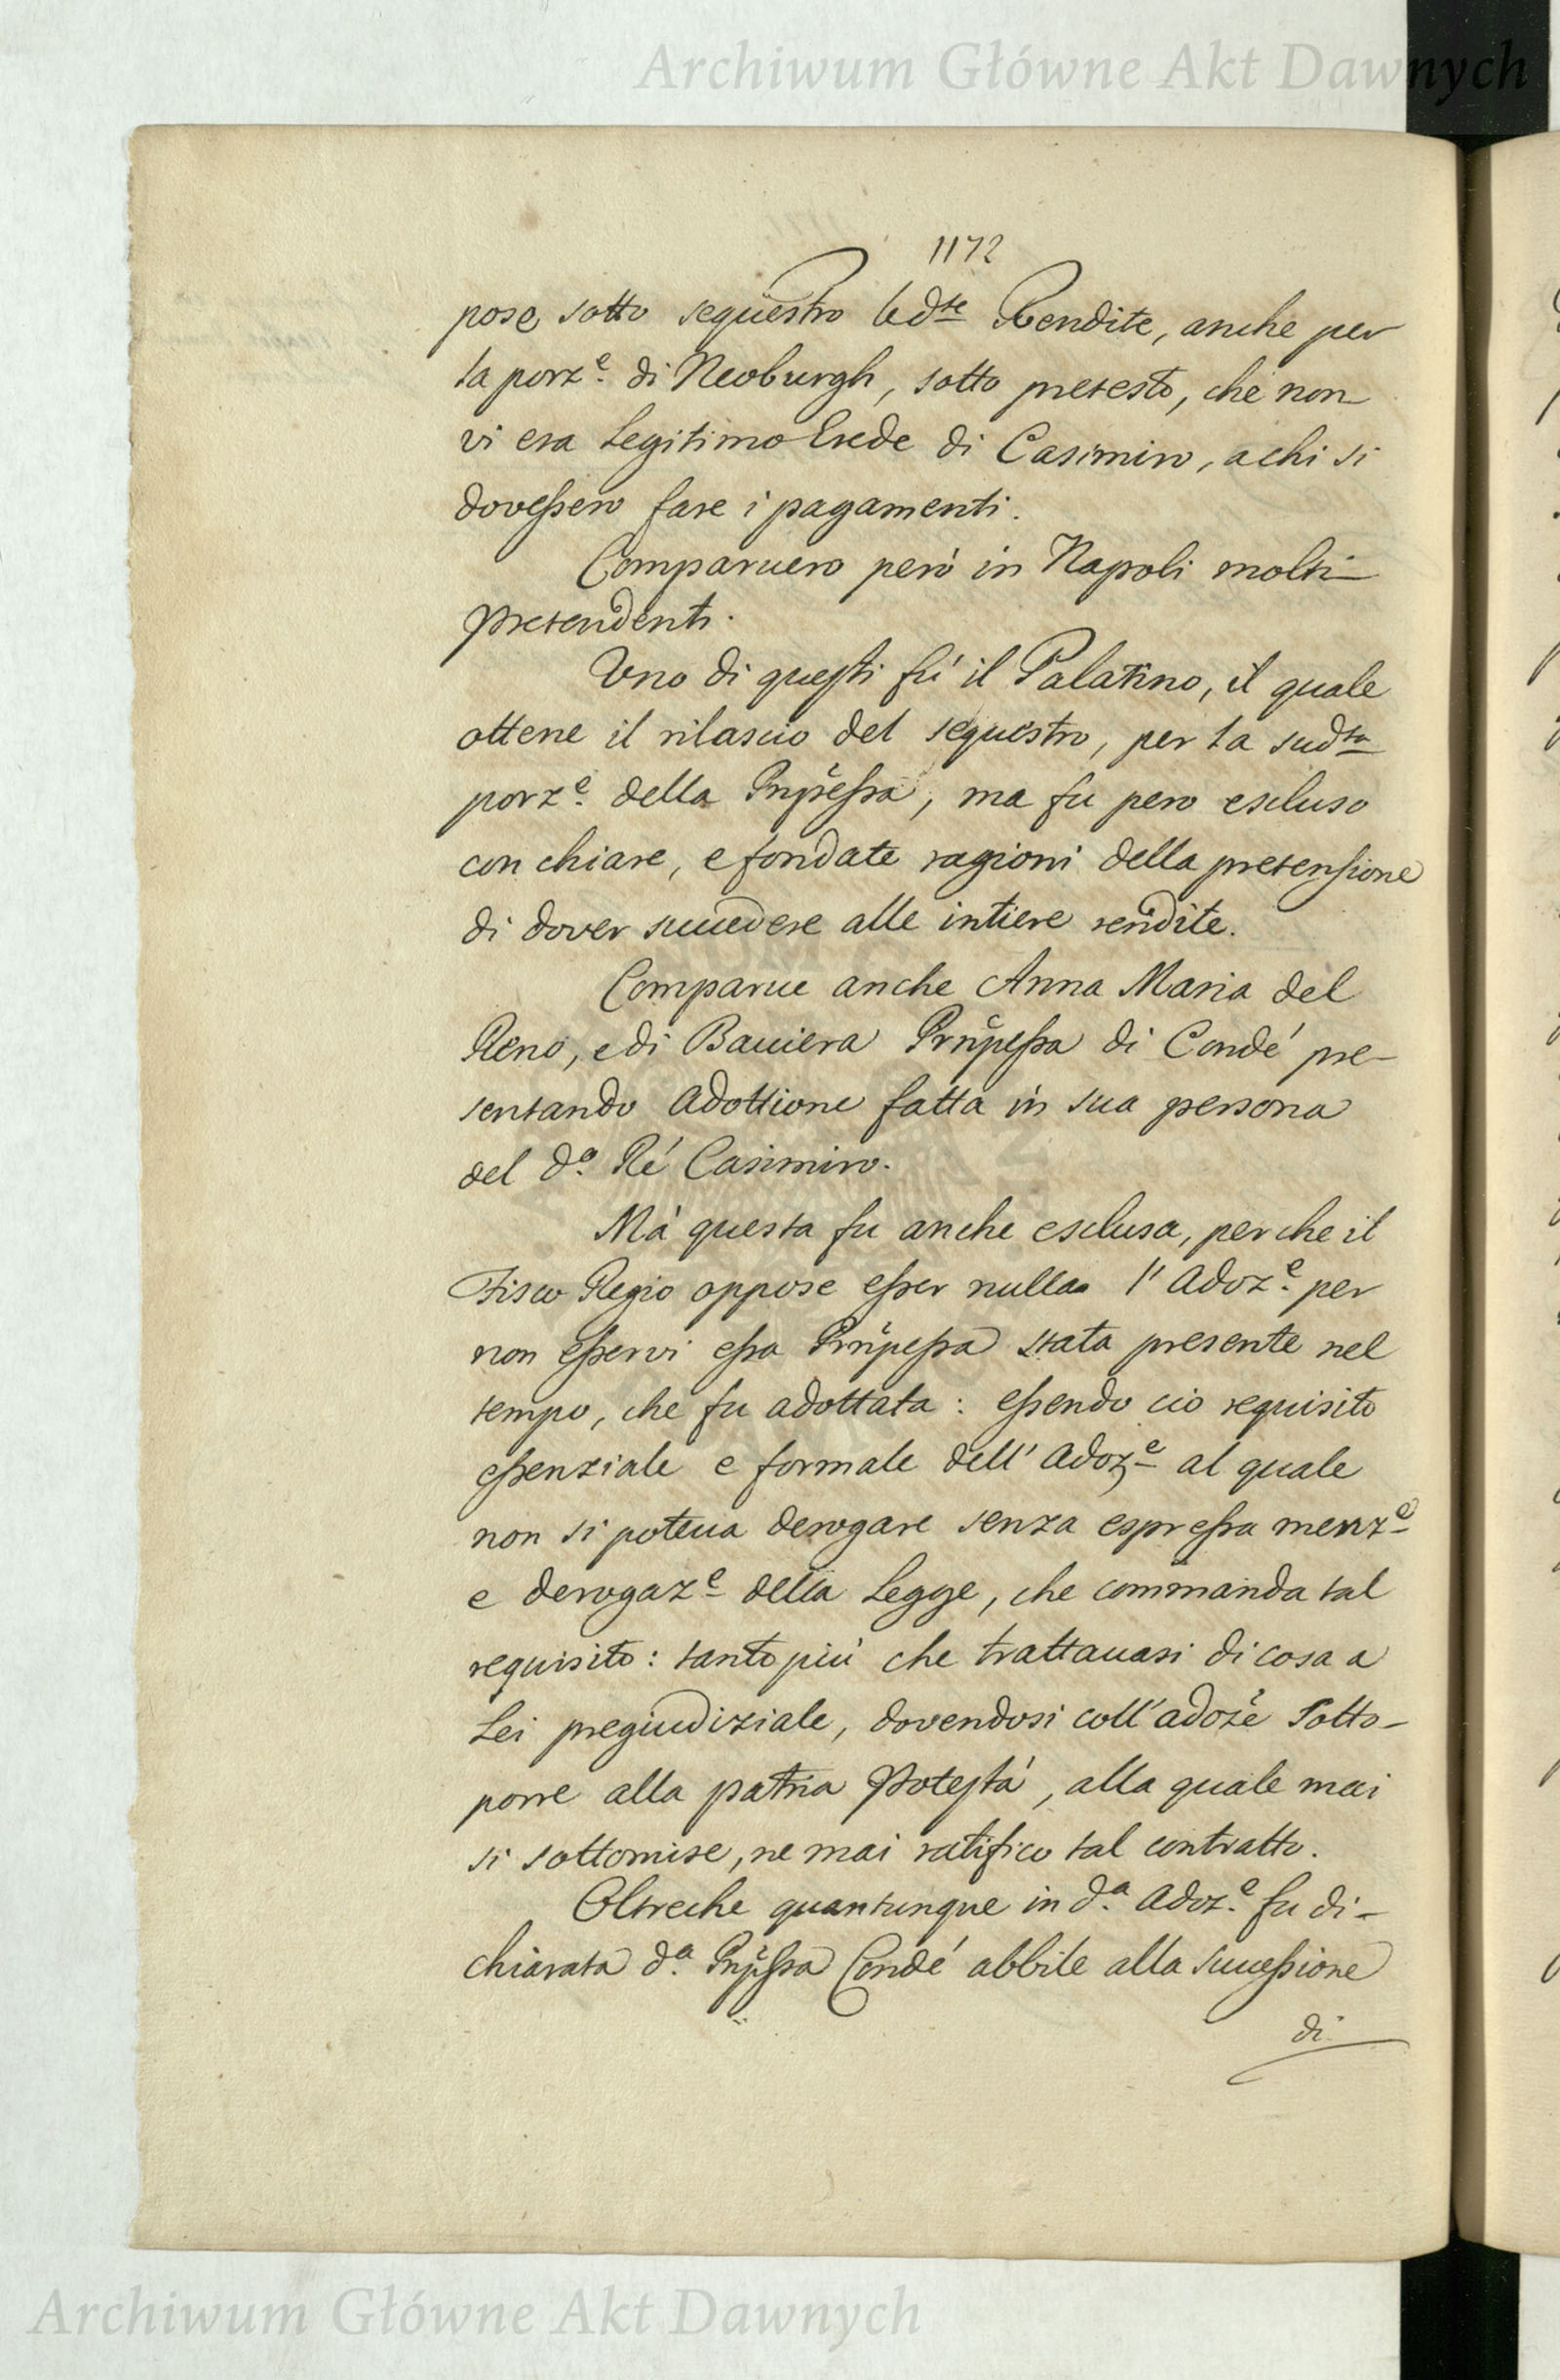 Archiwum Główne Akt Dawnych
1172
pose sotto sequestro le dte Rendite, anche per
la porze. di Neoburgh, sotto pretesto, che non
vi era Legitimo Erede di Casimiro, a chi si
dovessero fare i pagamenti.
Comparuero però in Napoli molti
pretendenti.
Uno di questi fù il Palatino, il quale
ottene il rilascio del sequestro, per la sudta
porze. della Prñpessa, ma fu pero escluso
con chiare, e fondate ragioni della pretensione
di dover succedere alle intiere rendite.
Comparue anche Anna Maria del
Reno, e di Bauiera Prñpessa di Condé pre-
sentando Adottione fatta in sua persona
del do. Ré Casimiro.
Mà questa fu anche esclusa, perche il
Fisco Regio oppose esser nulla l'Adoze. per
non esservi essa Prñpessa stata presente nel
tempo, che fu adottata: essendo cio requisito
essenziale e formale dell'Adoze al quale
non si poteua derogare senza espressa menze
e derogaze della Legge, che commanda tal
requisito: tanto più che trattauasi di cosa a
Lei pregiudiziale, dovendosi coll'adoze Sotto-
porre alla patria Potestà, alla quale mai
si sottomise, ne mai ratifico tal contratto.
Oltreche quantunque in da. Adoze. fu di-
chiarata da. Prñpessa Condé abbile alla Successione
di
Archiwum Główne Akt Dawnych